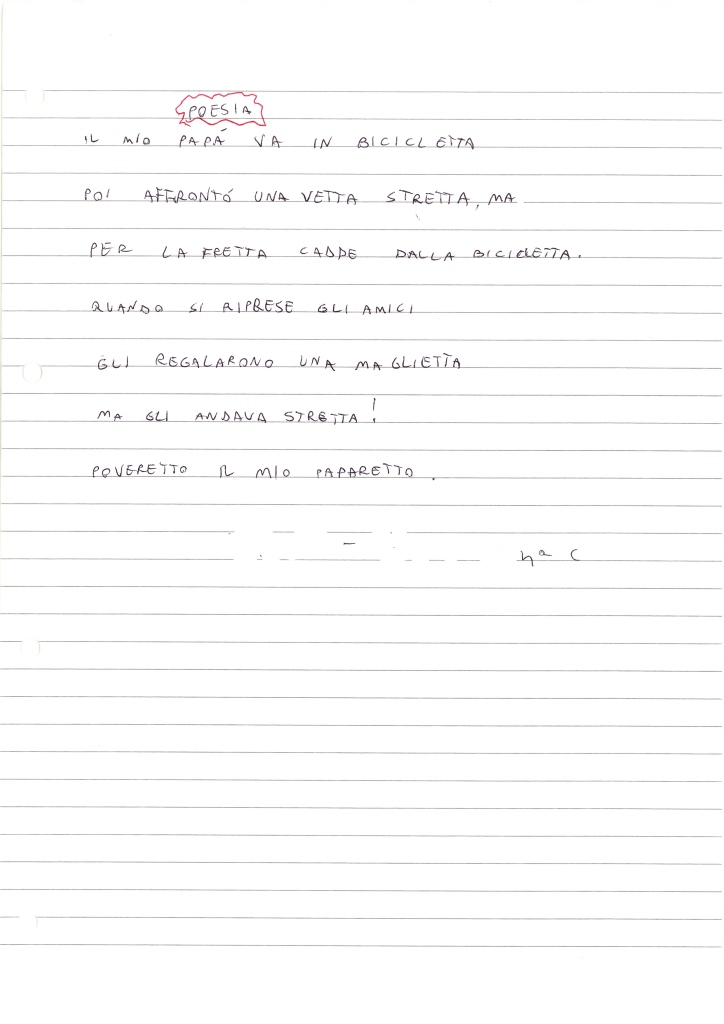 POESIA
IL MIO PAPÁ VA IN BICICLETTA
POI AFFRONTÓ UNA VETTA STRETTA, MA
PER LA FRETTA CADDE DALLA BICICLETTA.
QUANDO SI RIPRESE GLI AMICI
GLI REGALARONO UNA MAGLIETTA
MA GLI ANDAVA STRETTA!
POVERETTO IL MIO PAPARETTO.
4ª C